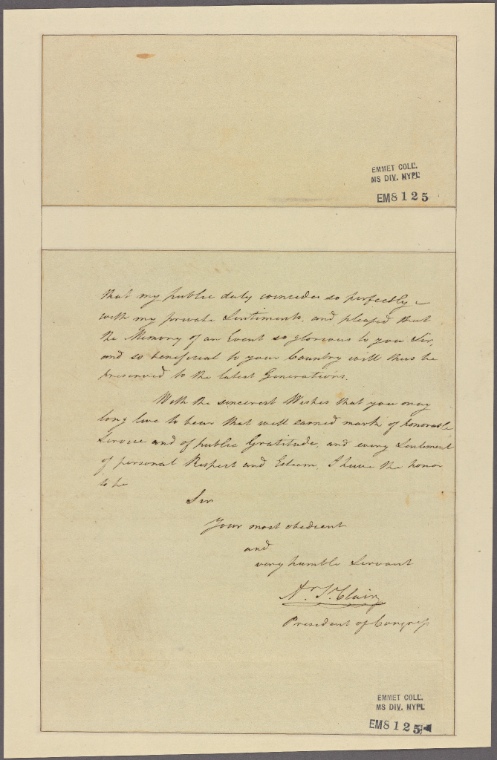 EMMET COLL.
MS DIV. NYPL
EM8125
that my public duty coincides so perfectly
with my private Sentiments, and pleased that
the Memory of an Event so glorious to you Sir,
and so beneficial to your Country will thus be
preserved to the latest Generations.
With the sincerest Wishes that you may
long live to bear that well earned mark of honorable
Service and of public Gratitude, and every Sentiment
of personal Respect and Esteem, I have the honor
to be
Sir
Your most obedient
and
very humble Servant
Ar. St. Clair
President of Congress
EMMET COLL.
MS DIV. NYPL
EM8125